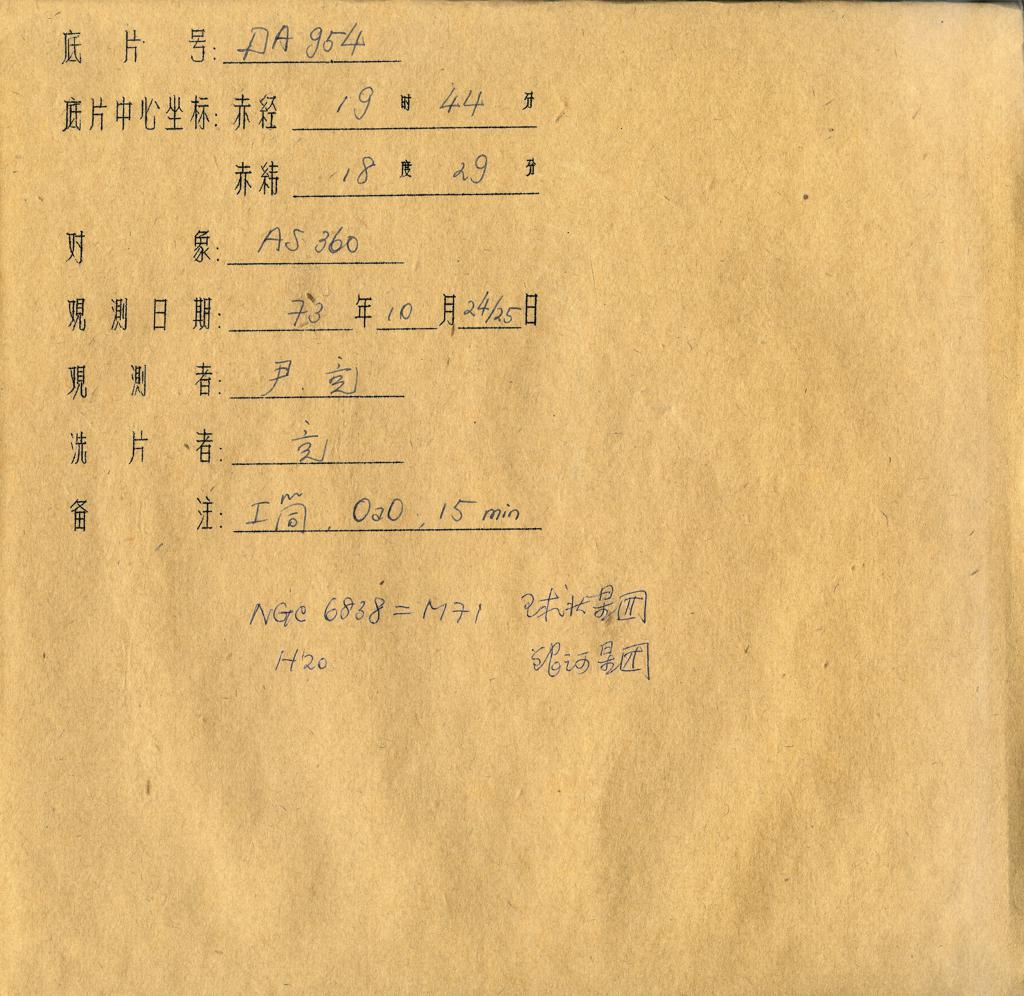 底片号: DA 954
底片中心坐标: 赤经 19 时 44 分
赤纬 18 度 29 分
对象: AS 360
观测日期: 73 年 10 月 24/25 日
观测者: 尹. 亮
洗片者: 亮
备注: 工筒, OaO, 15 min
NGC 6838 = M71 球状星团
H20 银河星团